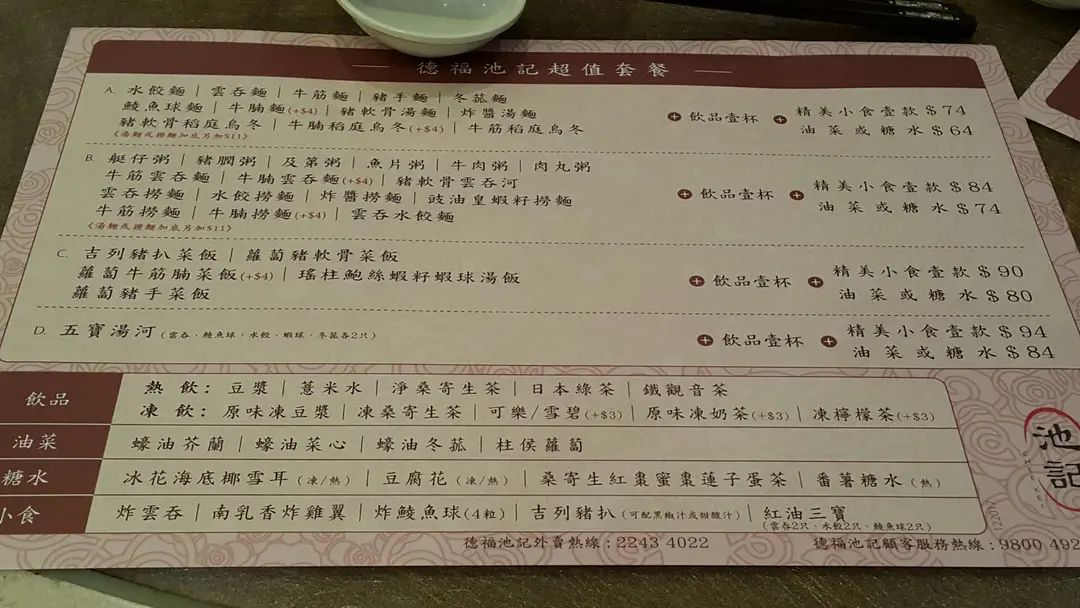 德福池記超值套餐
A. 水餃麵 | 雲吞麵 | 牛筋麵 | 豬手麵 | 冬菰麵
鯪魚球麵 | 牛腩麵(+$4) | 豬軟骨湯麵 | 炸醬湯麵
豬軟骨稻庭烏冬 | 牛腩稻庭烏冬(+$4) | 牛筋稻庭烏冬
《湯麵或撈麵加底另加$11》
+ 飲品壹杯 + 精美小食壹款 $74
油菜或糖水 $64
B. 艇仔粥 | 豬膶粥 | 及第粥 | 魚片粥 | 牛肉粥 | 肉丸粥
牛筋雲吞麵 | 牛腩雲吞麵(+$4) | 豬軟骨雲吞河
雲吞撈麵 | 水餃撈麵 | 炸醬撈麵 | 豉油皇蝦籽撈麵
牛筋撈麵 | 牛腩撈麵(+$4) | 雲吞水餃麵
《湯麵或撈麵加底另加$11》
+ 飲品壹杯 + 精美小食壹款 $84
油菜或糖水 $74
C. 吉列豬扒菜飯 | 蘿蔔豬軟骨菜飯
蘿蔔牛筋腩菜飯(+$4) | 瑤柱鮑絲蝦籽蝦球湯飯
蘿蔔豬手菜飯
+ 飲品壹杯 + 精美小食壹款 $90
油菜或糖水 $80
D. 五寶湯河(雲吞、鯪魚球、水餃、蝦球、冬菰各2只)
+ 飲品壹杯 + 精美小食壹款 $94
油菜或糖水 $84
飲品
熱飲: 豆漿 | 薏米水 | 淨桑寄生茶 | 日本綠茶 | 鐵觀音茶
凍飲: 原味凍豆漿 | 凍桑寄生茶 | 可樂/雪碧(+$3) | 原味凍奶茶(+$3) | 凍檸檬茶(+$3)
油菜
蠔油芥蘭 | 蠔油菜心 | 蠔油冬菰 | 柱侯蘿蔔
糖水
冰花海底椰雪耳(凍/熱) | 豆腐花(凍/熱) | 桑寄生紅棗蜜棗蓮子蛋茶 | 番薯糖水(熱)
小食
炸雲吞 | 南乳香炸雞翼 | 炸鯪魚球(4粒) | 吉列豬扒(可配黑椒汁或甜酸汁) | 紅油三寶
(雲吞2只、水餃2只、鯪魚球2只)
池記
德福池記外賣熱線:2243 4022
德福池記顧客服務熱線:9800 492